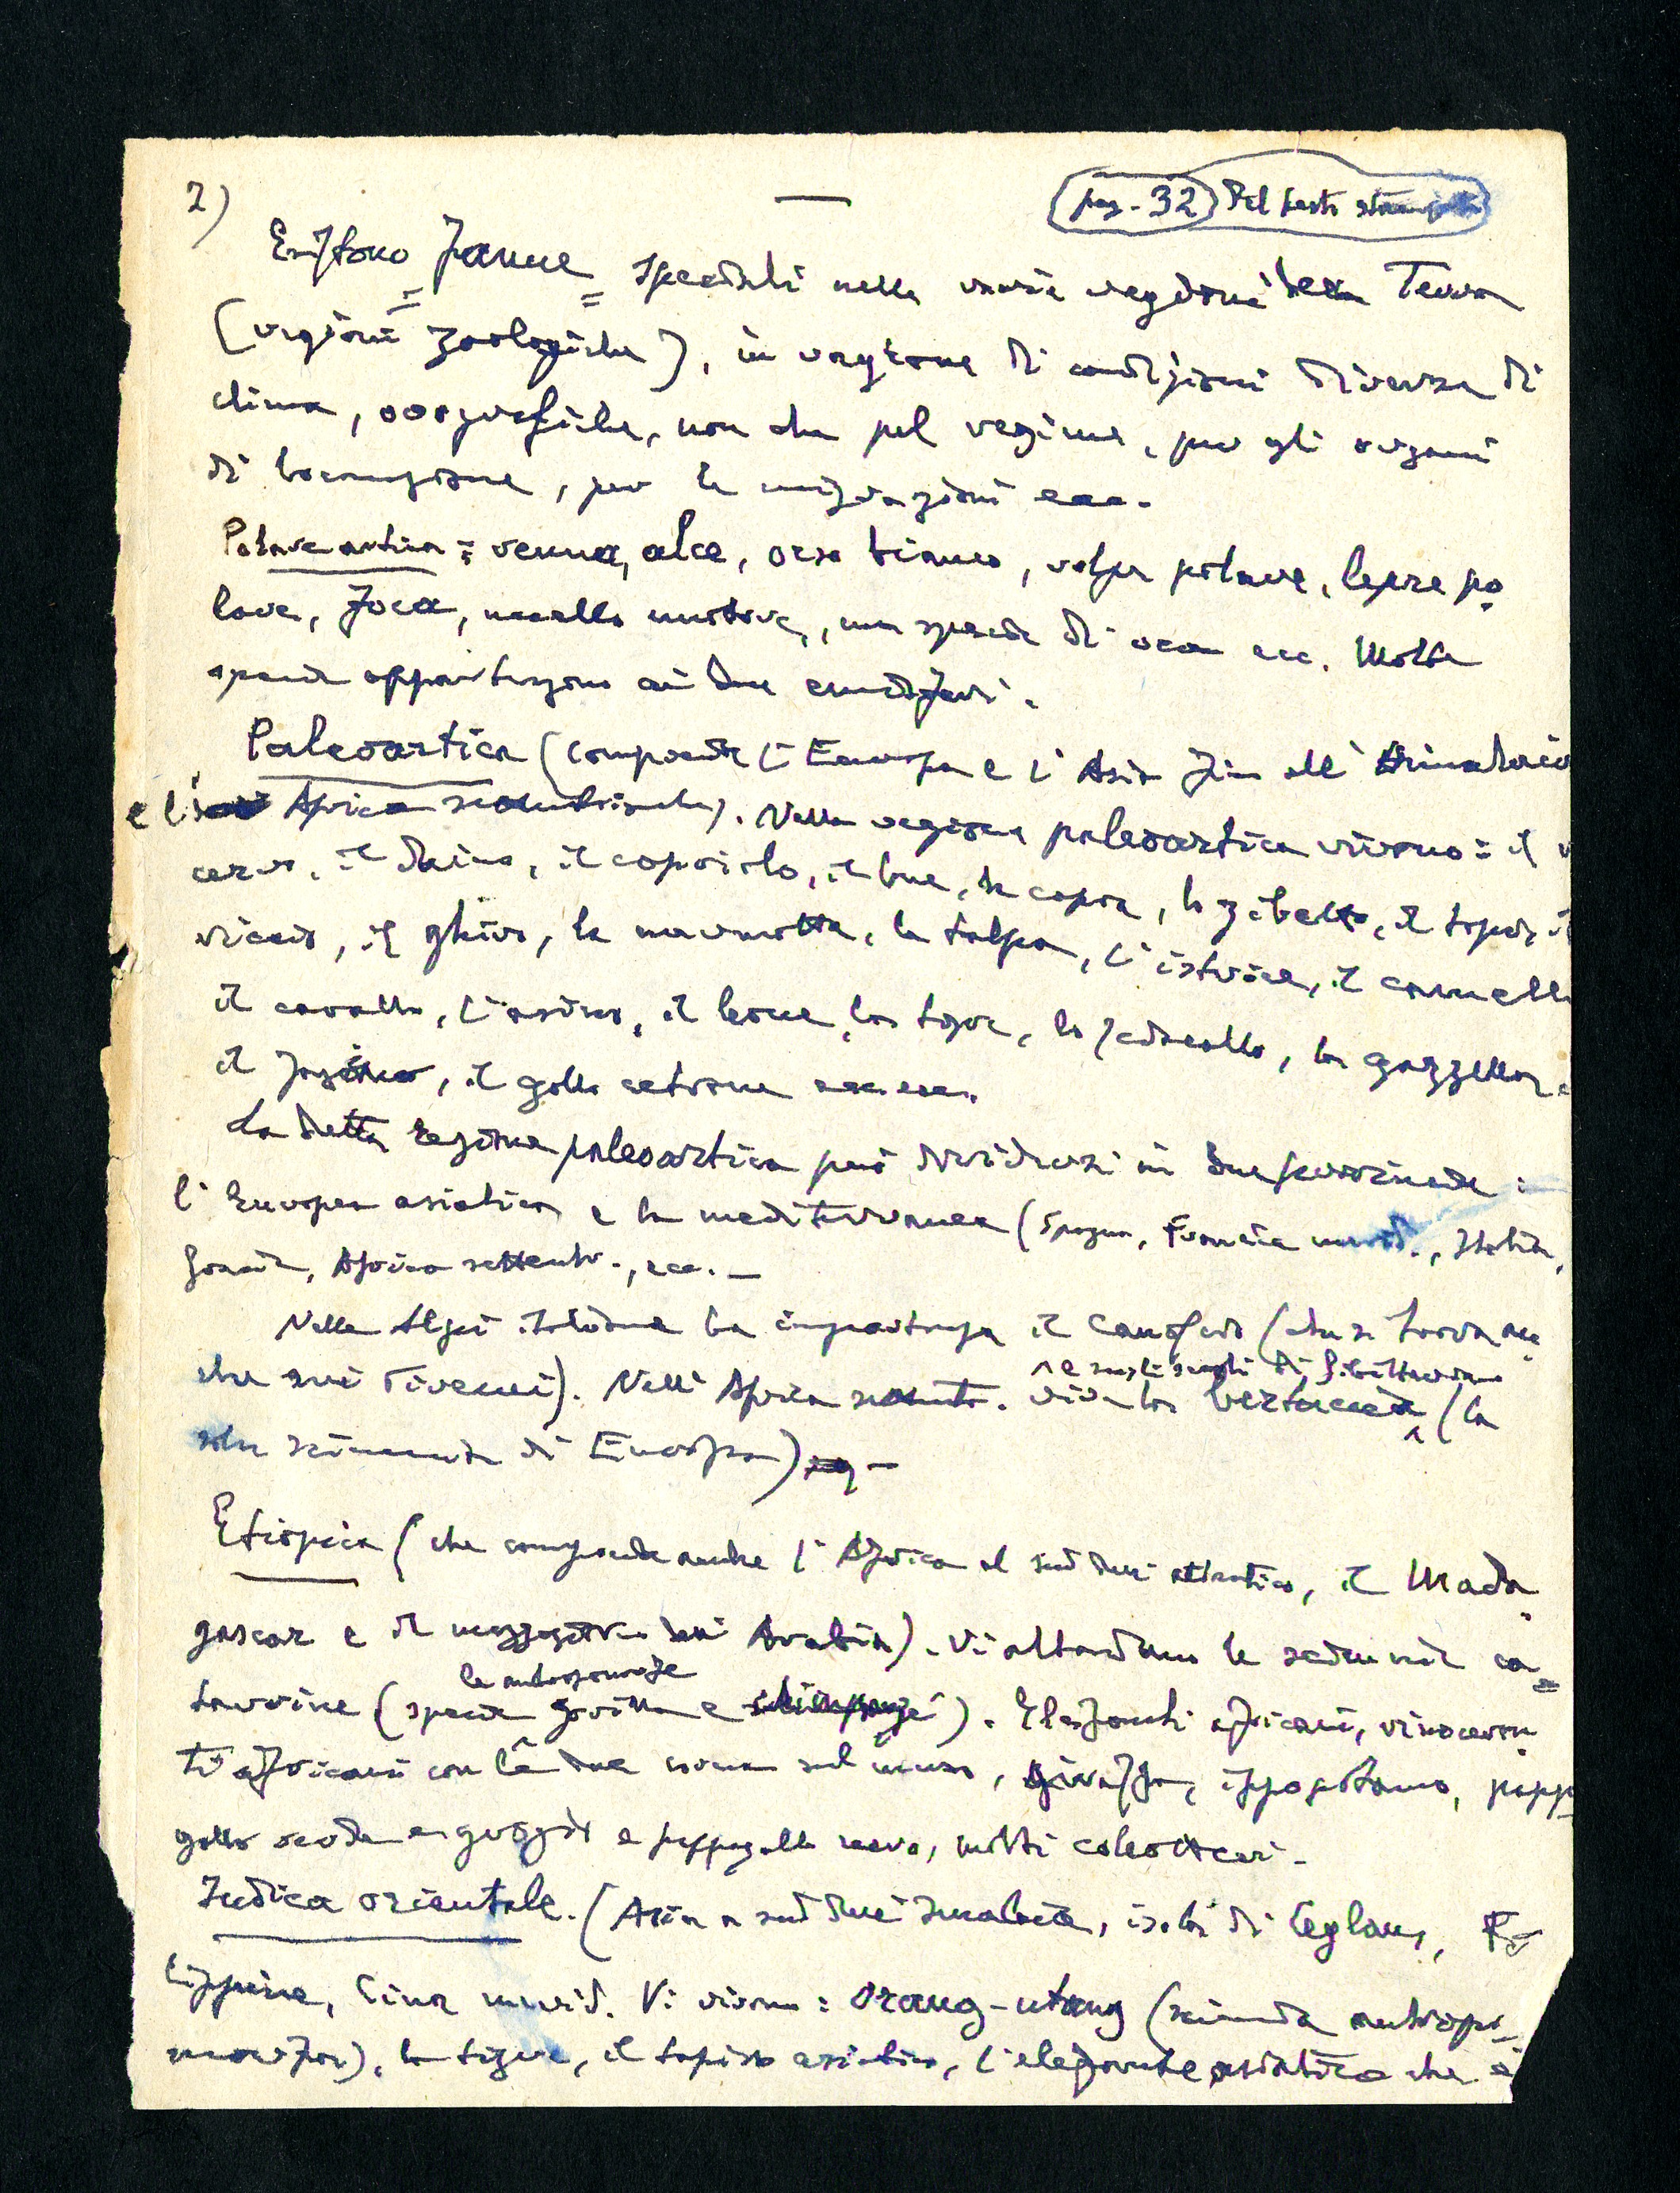 2) — pag. 32 Del testo
Esistono faune speciali nelle varie regioni della Terra
(regioni zoologiche), in ragione di condizioni diverse di
clima, orografiche, non che pel regime, per gli organi
di locomozione, per le migrazioni ecc.
Polare artica: renna, alce, orso bianco, volpe polare, lepre po
lare, foca, uccello, una specie di oca ecc. Molte
specie appartengono ai due emisferi.
Paleoartica (comprende l'Europa e l'Asia fino all'Himalaia
e l' Africa settentrionale). Nella regione paleoartica vivono: il
cervo, il daino, il capriolo, il bue, la capra, lo zibetto, il topo, il
riccio, il ghiro, la marmotta, la talpa, l'istrice, il cammello
il cavallo, l'asino, il leone, la tigre, lo sciacallo, la gazzella,
il fagiano, il gallo cedrone ecc. ecc.
La detta regione paleoartica può dividersi in due provincie:
l'Europea asiatica e la mediterranea (Spagna, Francia merid., Italia,
Grecia, Africa settentr., ecc. —
Nelle Alpi italiane ha importanza il Camoscio (che si trova an
che sui Pirenei). Nell'Africa settent. vive la bertuccia (la
e sugli scogli di Gibilterra
sola scimmia di Europa) —
Etiopica (che comprende anche l'Africa al sud dell'atlantico, il Mada
gascar e il mezzogiorno dell'Arabia). Vi abbondano le scimmie ca
tarrine (specie gorilla e scimpanzé). Elefanti africani, rinoceron
le antropomorfe
ti africani con le due corna sul muso, giraffa, ippopotamo, pappa
gallo verde e grigio e pappagallo nero, molti coleotteri.
Indica orientale. (Asia a sud dell'Imalaia, isola di Ceylan, Fi
lippine, Cina merid. Vi vivono: orang-utang (scimmia antropo-
morfa), la tigre, il tapiro asiatico, l'elefante asiatico che è